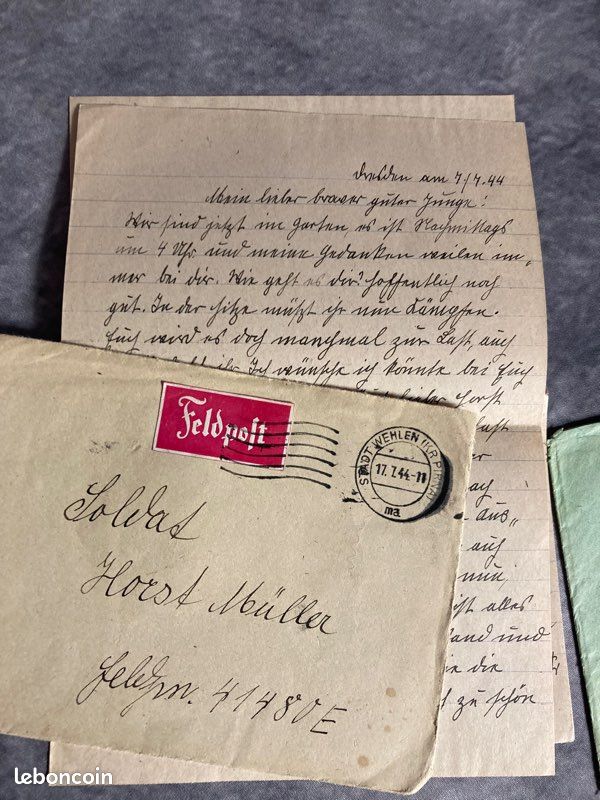 Dresden am 7/7.44
Mein lieber braver guter Junge!
Wir sind jetzt im Garten es ist Nachmittags
um 4 Uhr und meine Gedanken weilen im„
mer bei dir. Wie geht es dir? hoffentlich noch
gut. In der Hitze müßt ihr nun Kämpfen.
Euch wird es doch manchmal zur Last, auch
ihr. Ich wünsche ich könnte bei Euch
lieber Horst
aus„
auch
nun,
ist alles
und
die
zu schön
Feldpost
STADT WEHLEN (KR. PIRNA)
17.7.44-11
ma
Soldat
Horst Müller
Feldpn. 41480E
leboncoin